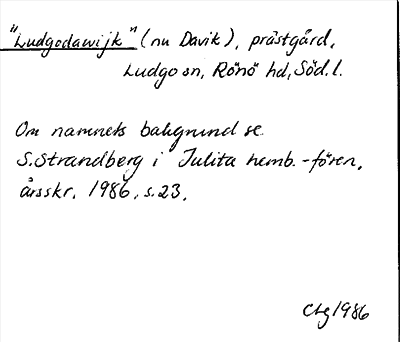 "Ludgodawijk" (nu Davik), prästgård,
Ludgo sn, Rönö hd, Söd.l.
Om namnets bakgrund se
S. Strandberg i Julita hemb.-fören.
årsskr. 1986, s. 23.
CHg 1986